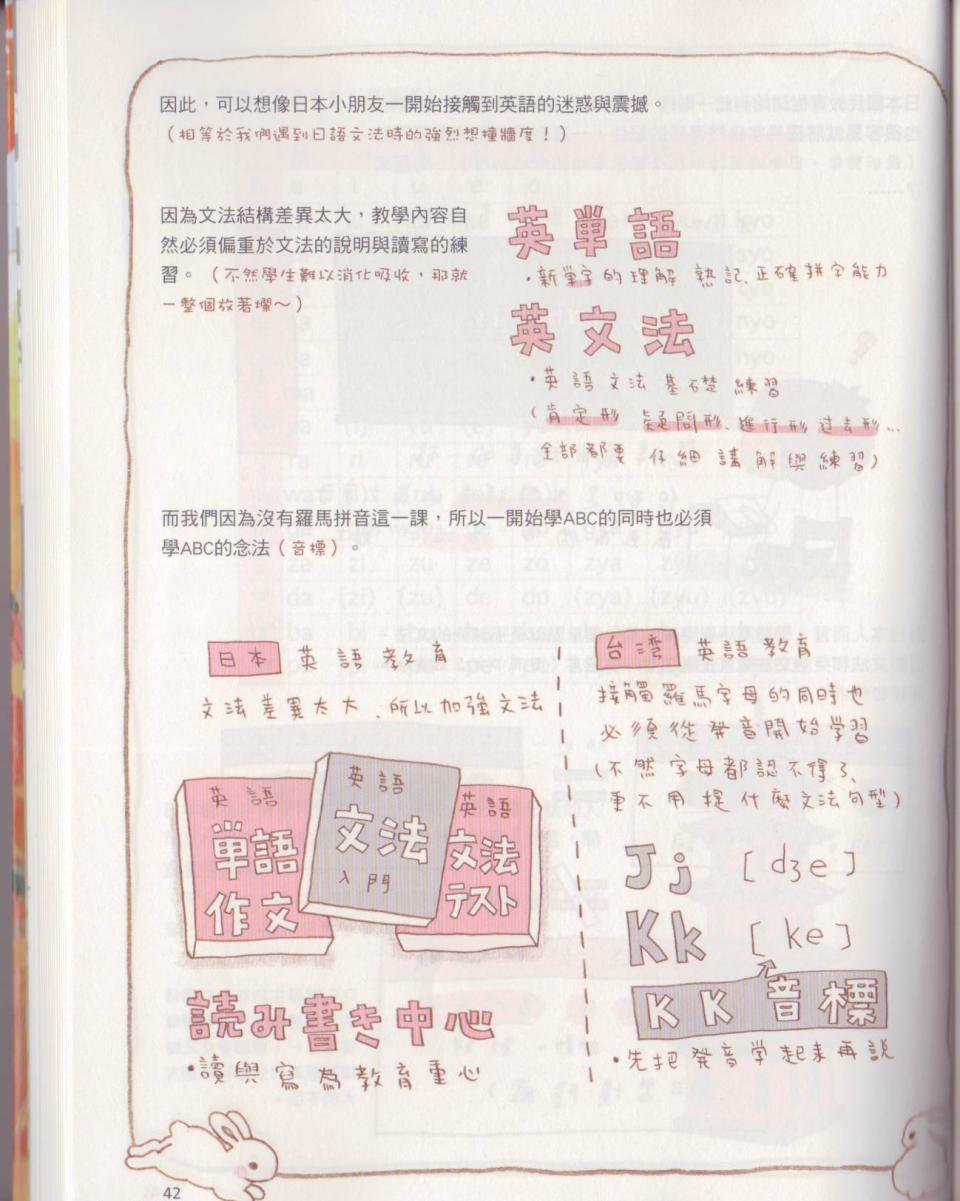 因此，可以想像日本小朋友一開始接觸到英語的迷惑與震撼。
（相等於我們遇到日語文法時的強烈想撞牆度！）
因為文法結構差異太大，教學內容自
然必須偏重於文法的說明與讀寫的練
習。（不然學生難以消化吸收，那就
一整個放著爛～）
英単語
・新單字的理解 熟記、正確拼字能力
英文法
・英語文法基礎練習
（肯定形 疑問形、進行形 过去形…
全部都要仔細講解與練習）
而我們因為沒有羅馬拼音這一課，所以一開始學ABC的同時也必須
學ABC的念法（音標）。
日本 英語教育
文法差異太大、所以加強文法
英語
単語
作文
英語
文法
入門
英語
文法
テスト
読み書き中心
・讀與寫為教育重心
台灣 英語教育
接觸羅馬字母的同時也
必須從発音開始學習
（不然字母都認不得了、
更不用提什麼文法句型）
Jj [dʒe]
Kk [ke]
KK音標
・先把発音学起来再說
42